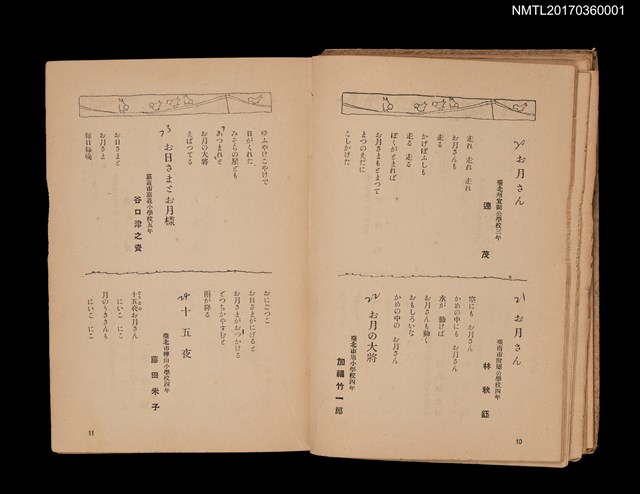 NMTL20170360001
お月さん
臺北州宜蘭公學校三年
連茂
走れ 走れ 走れ
お月さんも
走る
かげぼふしも
走る 走る
ぼくがとまれば
お月さまもとまつて
まつのえだに
こしかけた
21
お月さん
臺南市附屬公學校四年
林秋鈺
空にも お月さん
かめの中にも お月さん
水が 動けば
お月さんも動く
おもしろいな
かめの中の お月さん
22
お月の大將
臺北市旭小學校四年
加福竹一郎
10
ゆふやけこやけで
日がくれた
みそらの星ども
あつまれと
お月の大將
えばつてる
23
お日さまとお月樣
嘉義市嘉義小學校五年
谷口津之資
お日さまと
お月さま
毎日毎晩
おにごつこ
お日さまがにげると
お月さまがおつかける
どつちかやすむと
雨が降る
24
十五夜
臺北市樺山小學校四年
藤田朱子
十五夜お月さん
にいこ にこ
月のうさぎさんも
にいこ にこ
11